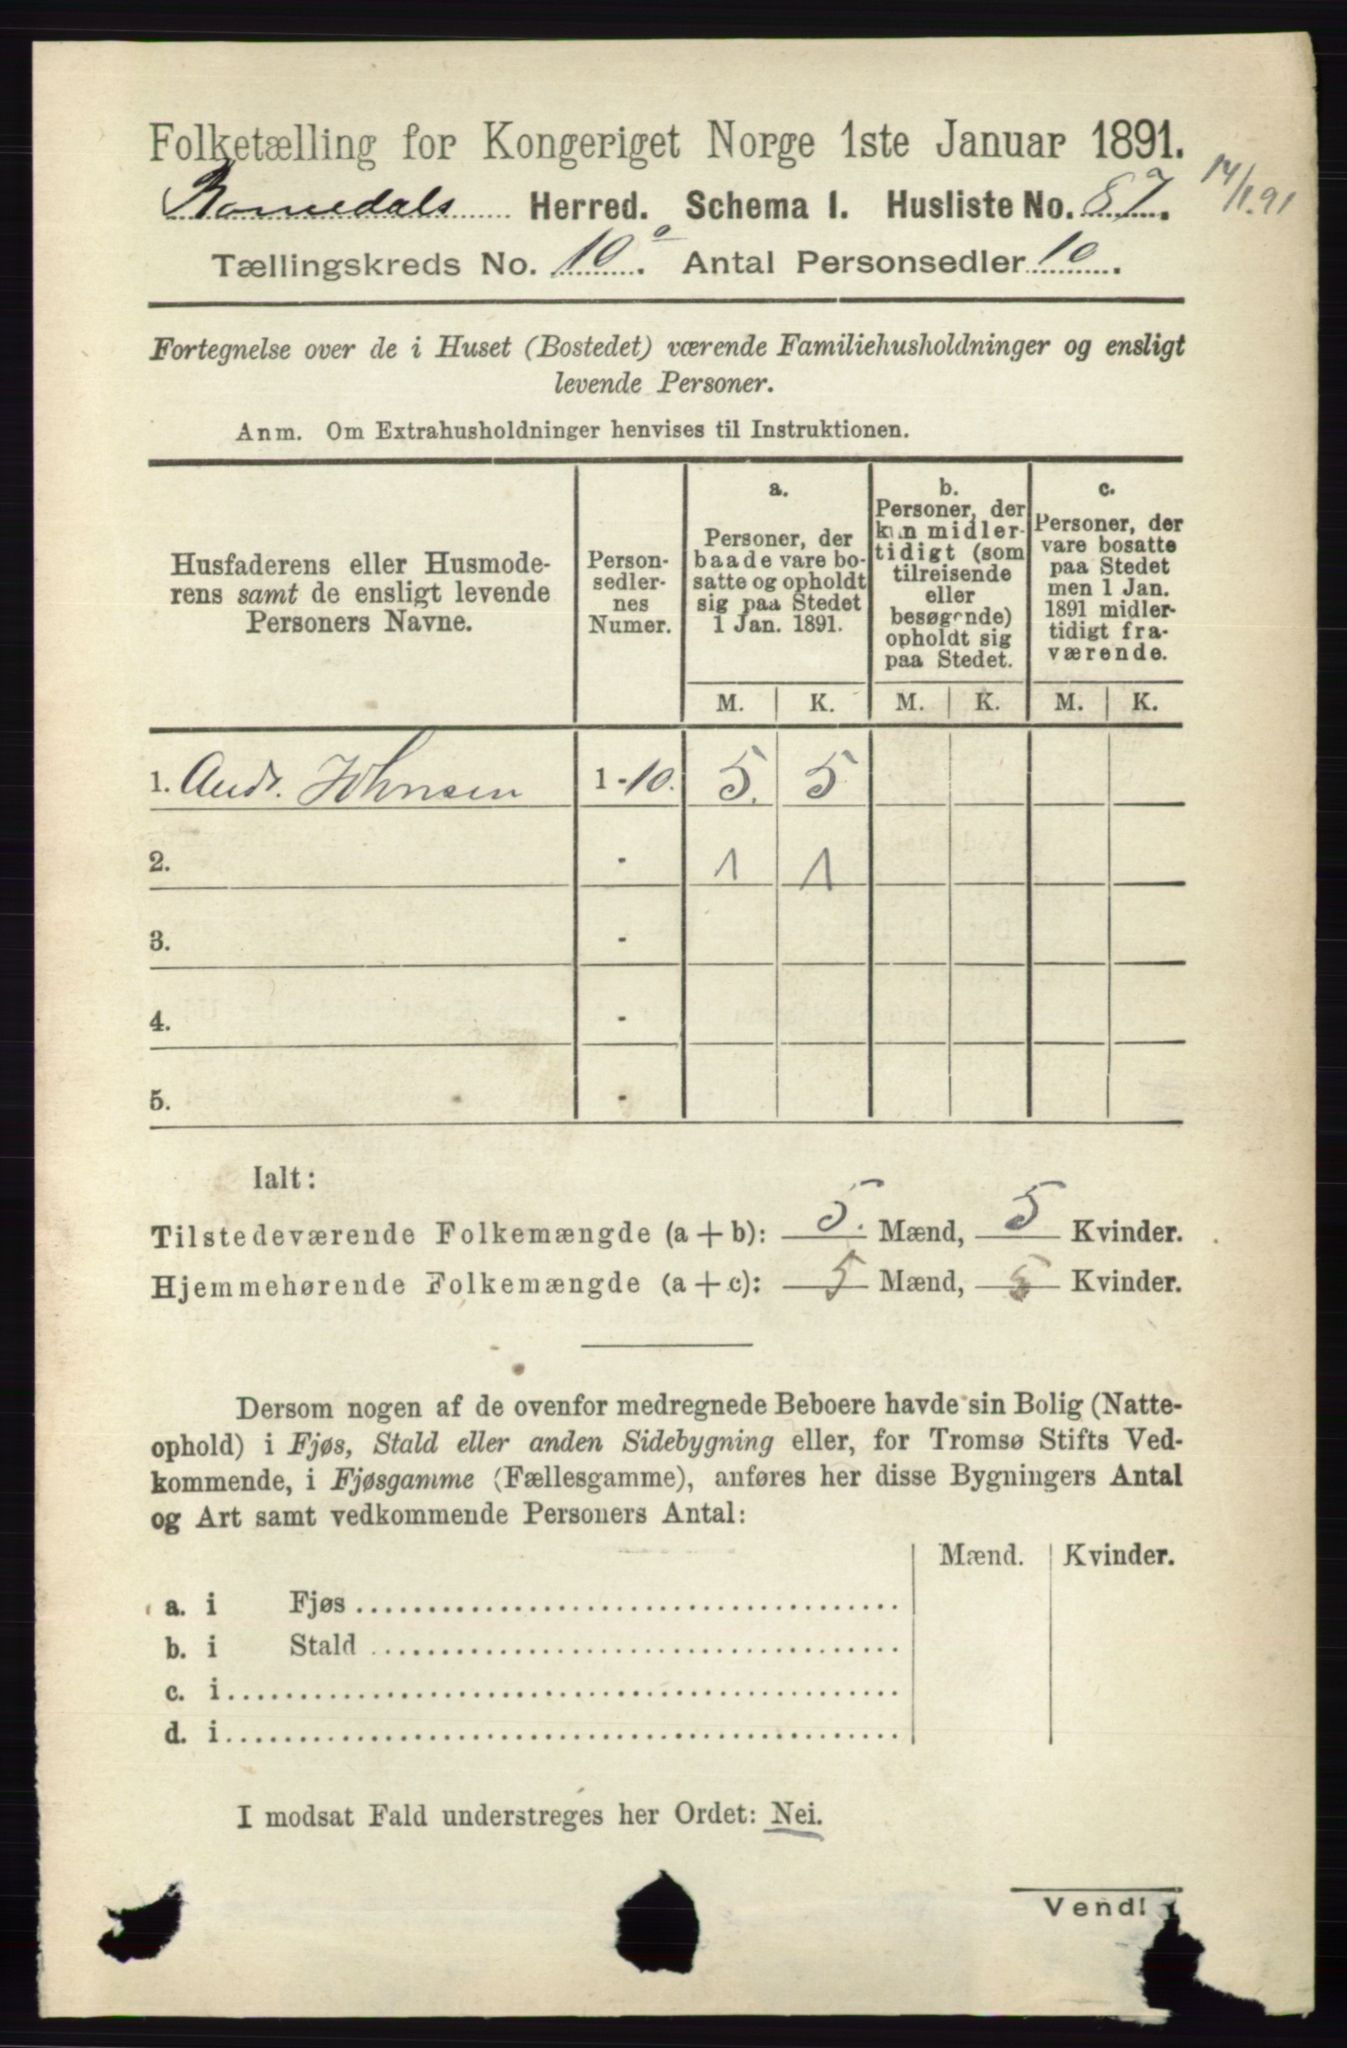 Folketælling for Kongeriget Norge 1ste Januar 1891.
Romedals Herred. Schema I. Husliste No. 87. 14/1.91
Tællingskreds No. 10a. Antal Personsedler 10.
Fortegnelse over de i Huset (Bostedet) værende Familiehusholdninger og ensligt
levende Personer.
Anm. Om Extrahusholdninger henvises til Instruktionen.
Husfaderens eller Husmode-
rens samt de ensligt levende
Personers Navne.
Person-
sedler-
nes
Numer.
a.
Personer, der
baade vare bo-
satte og opholdt
sig paa Stedet
1 Jan. 1891.
b.
Personer, der
kun midler-
tidigt (som
tilreisende
eller
besøgende)
opholdt sig
paa Stedet.
c.
Personer, der
vare bosatte
paa Stedet
men 1 Jan.
1891 midler-
tidigt fra-
værende.
M. K. M. K. M. K.
1. Andr. Johnsen 1-10. 5. 5
2. - 1 1
3. -
4. -
5. -
Ialt:
Tilstedeværende Folkemængde (a+b): 5. Mænd, 5 Kvinder.
Hjemmehørende Folkemængde (a+c): 5 Mænd, 5 Kvinder.
Dersom nogen af de ovenfor medregnede Beboere havde sin Bolig (Natte-
ophold) i Fjøs, Stald eller anden Sidebygning eller, for Tromsø Stifts Ved-
kommende, i Fjøsgamme (Fællesgamme), anføres her disse Bygningers Antal
og Art samt vedkommende Personers Antal:
Mænd. Kvinder.
a. i Fjøs
b. i Stald
c. i
d. i
I modsat Fald understreges her Ordet: Nei.
Vend!